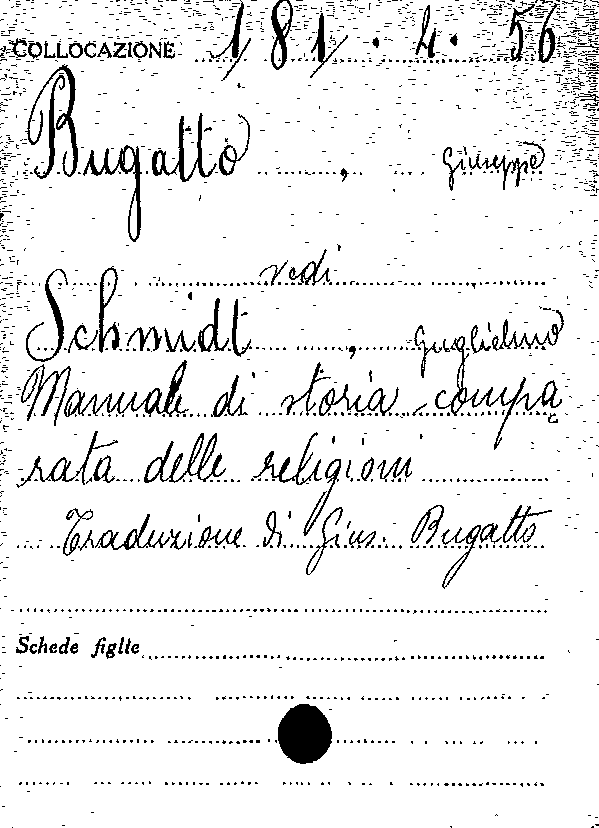 COLLOCAZIONE 181.4.56
Bugatto, Giuseppe
vedi
Schmidt, Guglielmo
Manuale di storia compa
rata delle religioni
Traduzione di Gius. Bugatto
Schede figlie